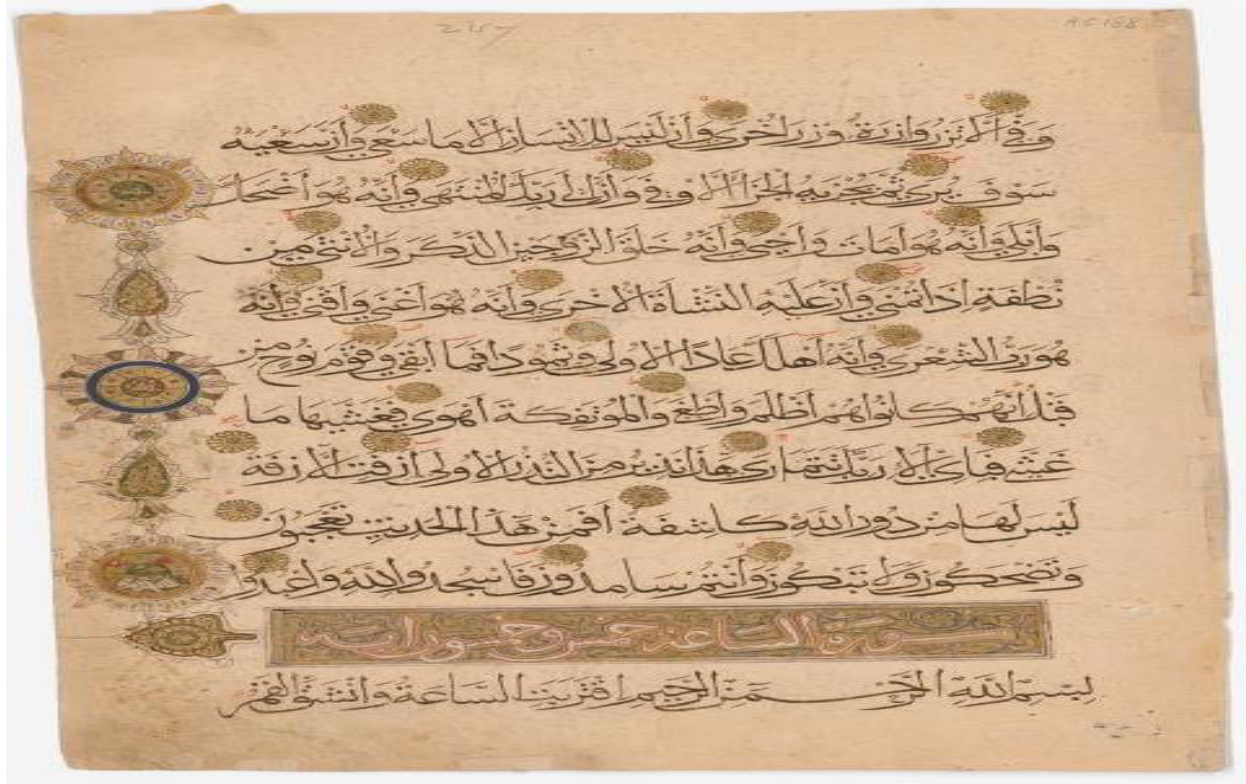 وَفَّى أَلَّا تَزِرُ وَازِرَةٌ وِزْرَ أُخْرَى وَأَن لَيْسَ لِلْإِنْسَانِ إِلَّا مَا سَعَى وَأَنَّ سَعْيَهُ
سَوْفَ يُرَى ثُمَّ يُجْزَيهُ الْجَزَاءَ الْأَوْفَى وَأَنَّ إِلَى رَبِّكَ الْمُنْتَهَى وَأَنَّهُ هُوَ أَضْحَكَ
وَأَبْكَى وَأَنَّهُ هُوَ أَمَاتَ وَأَحْيَى وَأَنَّهُ خَلَقَ الزَّوْجَيْنِ الذَّكَرَ وَالْأُنْثَى مِنْ
نُطْفَةٍ إِذَا تُمْنَى وَأَنَّ عَلَيْهِ النَّشْأَةَ الْأُخْرَى وَأَنَّهُ هُوَ أَغْنَى وَأَقْنَى وَأَنَّهُ
هُوَ رَبُّ الشِّعْرَى وَأَنَّهُ أَهْلَكَ عَادًا الْأُولَى وَثَمُودَا فَمَا أَبْقَى وَقَوْمَ نُوحٍ مِنْ
قَبْلُ إِنَّهُمْ كَانُوا هُمْ أَظْلَمَ وَأَطْغَى وَالْمُؤْتَفِكَةَ أَهْوَى فَغَشَّيهَا مَا
غَشَّى فَبِأَيِّ آلَاءِ رَبِّكَ تَتَمَارَى هَذَا نَذِيرٌ مِنَ النُّذُرِ الْأُولَى أَزِفَتِ الْآزِفَةُ
لَيْسَ لَهَا مِنْ دُونِ اللَّهِ كَاشِفَةٌ أَفَمِنْ هَذَا الْحَدِيثِ تَعْجَبُونَ
وَتَضْحَكُونَ وَلَا تَبْكُونَ وَأَنْتُمْ سَامِدُونَ فَاسْجُدُوا لِلَّهِ وَاعْبُدُوا
سورة الساعة خمس وخمسون اية
بِسْمِ اللَّهِ الرَّحْمَنِ الرَّحِيمِ اقْتَرَبَتِ السَّاعَةُ وَانْشَقَّ الْقَمَرُ